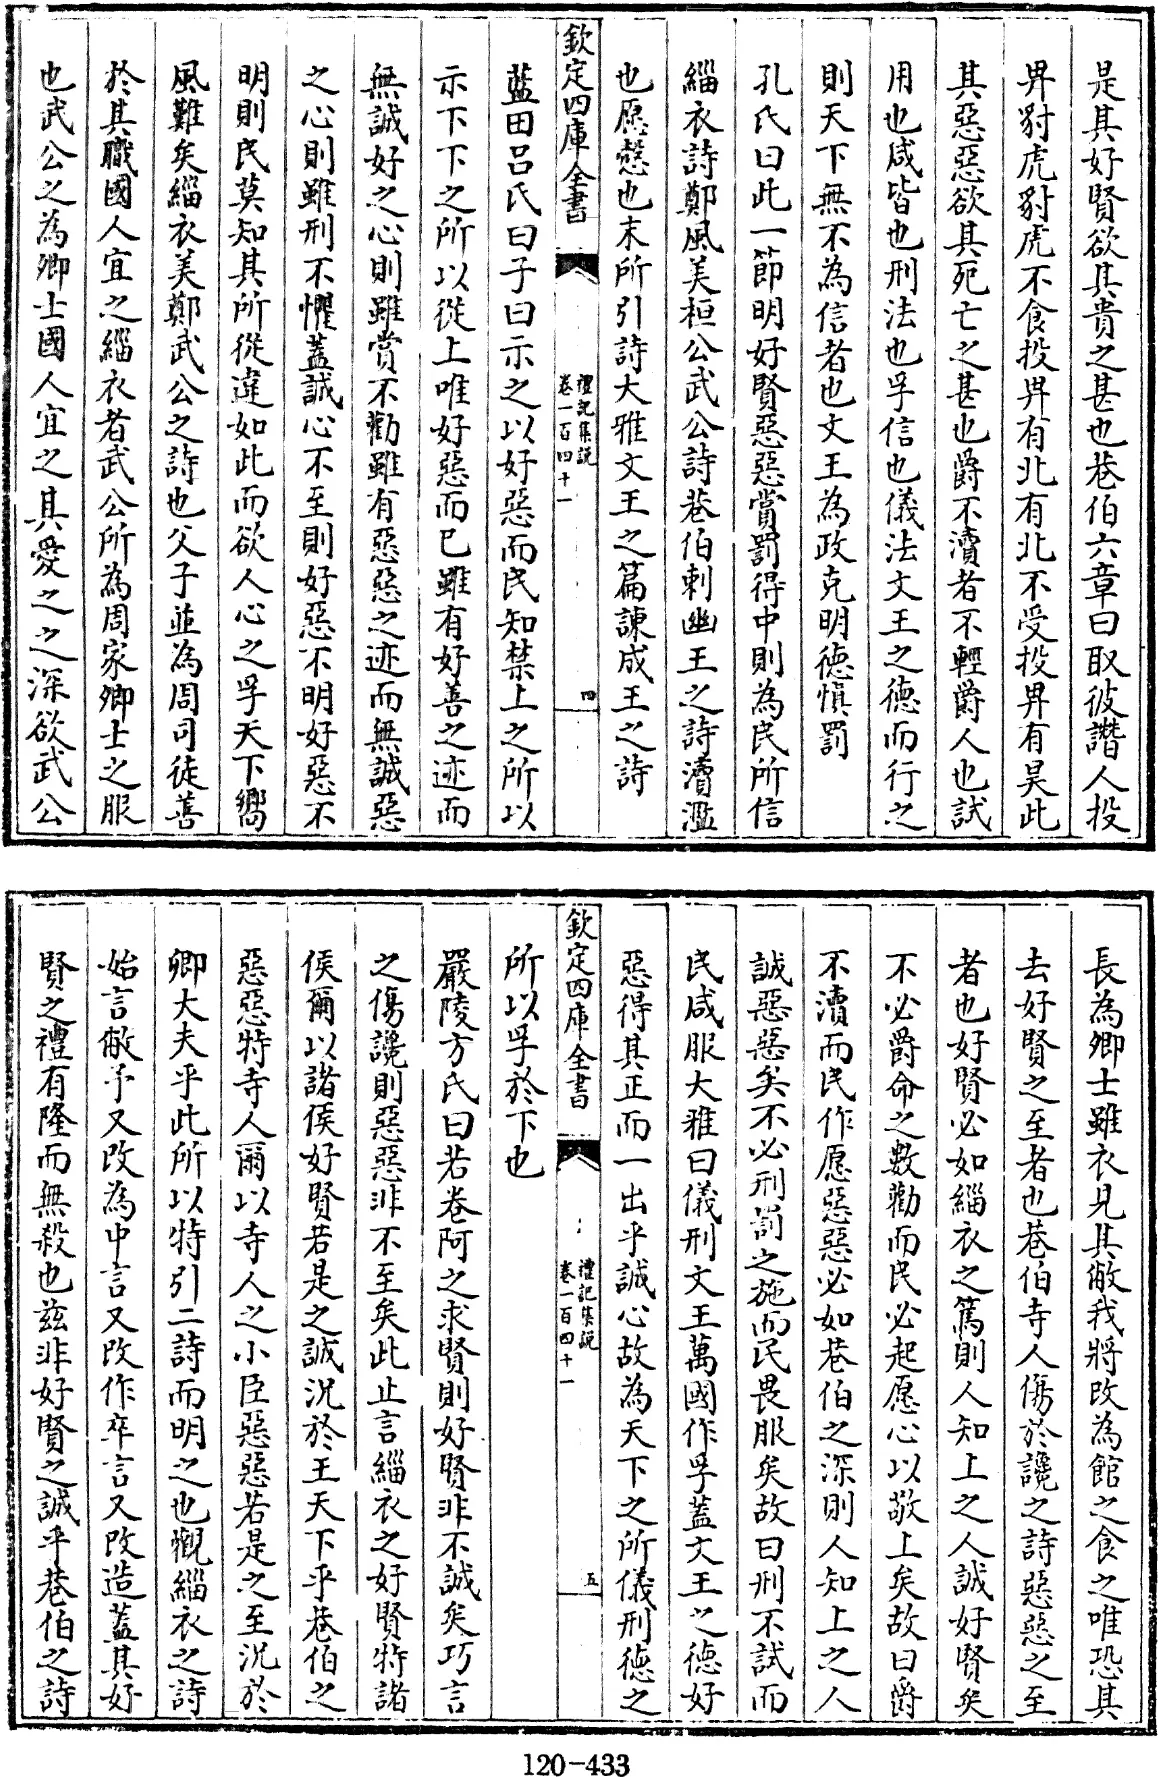 是其好賢欲其貴之甚也巷伯六章曰取彼譖人投
畀豺虎豺虎不食投畀有北有北不受投畀有昊此
其惡惡欲其死亡之甚也爵不瀆者不輕爵人也試
用也咸皆也刑法也孚信也儀法文王之德而行之
則天下無不為信者也文王為政克明德慎罰
孔氏曰此一節明好賢惡惡賞罰得中則為民所信
緇衣詩鄭風美桓公武公詩巷伯刺幽王之詩瀆濫
也愿慤也末所引詩大雅文王之篇諫成王之詩
欽定四庫全書 禮記集說 卷一百四十一 四
藍田呂氏曰子曰示之以好惡而民知禁上之所以
示下下之所以從上唯好惡而已雖有好善之迹而
無誠好之心則雖賞不勸雖有惡惡之迹而無誠惡
之心則雖刑不懼蓋誠心不至則好惡不明好惡不
明則民莫知其所從違如此而欲人心之孚天下嚮
風難矣緇衣美鄭武公之詩也父子並為周司徒善
於其職國人宜之緇衣者武公所為周家卿士之服
也武公之為卿士國人宜之其愛之之深欲武公
長為卿士雖衣見其敝我將改為館之食之唯恐其
去好賢之至者也巷伯寺人傷於讒之詩惡惡之至
者也好賢必如緇衣之篤則人知上之人誠好賢矣
不必爵命之數勸而民必起愿心以敬上矣故曰爵
不瀆而民作愿惡惡必如巷伯之深則人知上之人
誠惡惡矣不必刑罰之施而民畏服矣故曰刑不試而
民咸服大雅曰儀刑文王萬國作孚蓋文王之德好
惡得其正而一出乎誠心故為天下之所儀刑德之
欽定四庫全書 禮記集說 卷一百四十一 五
所以孚於下也
嚴陵方氏曰若卷阿之求賢則好賢非不誠矣巧言
之傷讒則惡惡非不至矣此止言緇衣之好賢特諸
侯爾以諸侯好賢若是之誠況於王天下乎巷伯之
惡惡特寺人爾以寺人之小臣惡惡若是之至況於
卿大夫乎此所以特引二詩而明之也觀緇衣之詩
始言敝予又改為中言又改作卒言又改造蓋其好
賢之禮有隆而無殺也茲非好賢之誠乎巷伯之詩
120-433